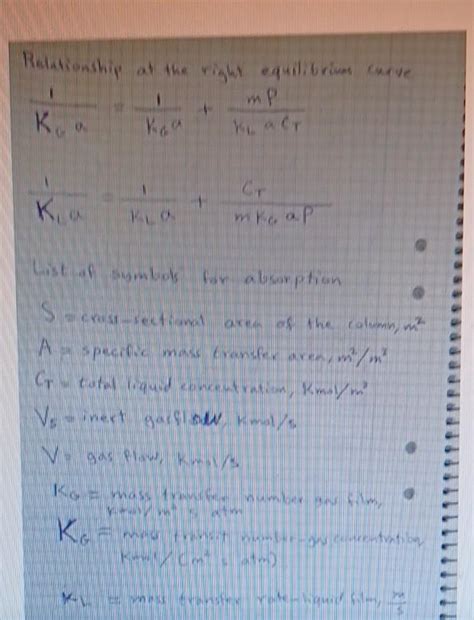 Relationship at the right equilibrium curve
1/(K_G a) = 1/(k_G a) + mP/(k_L a C_T)
1/(K_L a) = 1/(k_L a) + C_T/(m k_G a P)
List of symbols for absorption
S = cross-sectional area of the column, m²
A = specific mass transfer area, m²/m³
C_T = total liquid concentration, Kmol/m³
V_S = inert gasflow, Kmol/s
V = gas flow, Kmol/s
K_G = mass transfer number gas film,
kmol/m² s atm
K_G = mass transit number-gas concentration
Kmol/(m² s atm)
K_L = mass transfer rate-liquid film, m/s